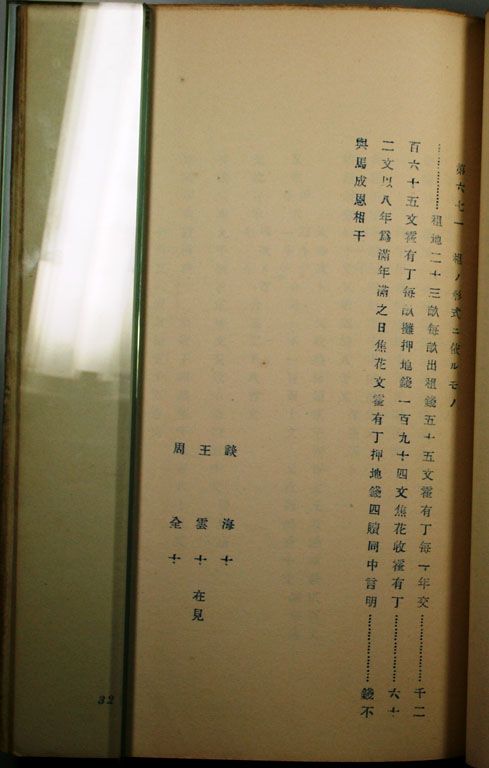 第六七一 租ノ形式ニ依ルモノ
………………租地二十三畝每畝出租錢五十五文霍有丁每一年交………………千二
百六十五文霍有丁每畝攤押地錢一百九十四文焦花收霍有丁………………六十
二文以八年爲滿年滿之日焦花文霍有丁押地錢四贖同中言明………………錢不
與馬成恩相干
談 海 十
王 雲 十 在見
周 全 十
32